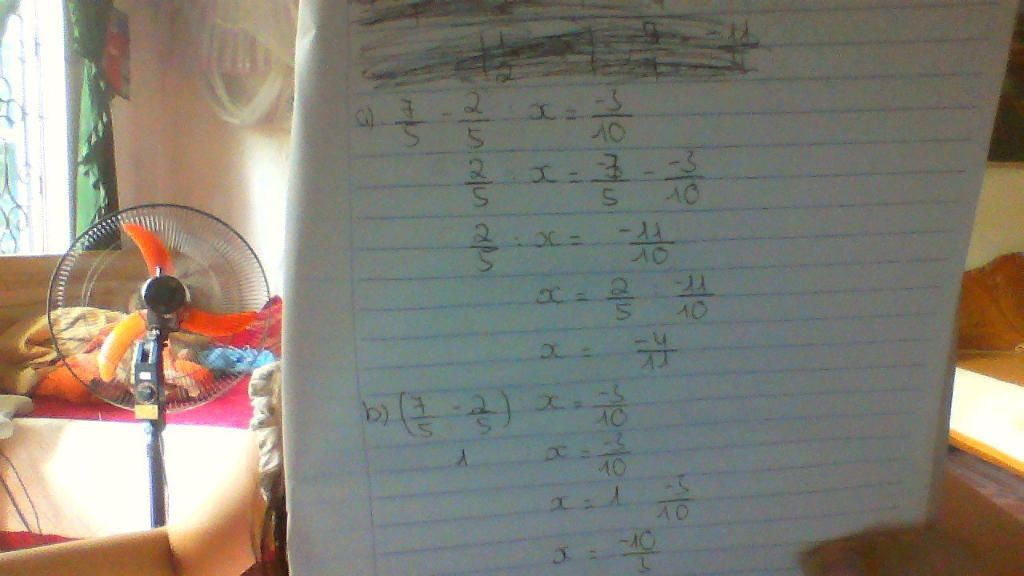 a) 7/5 - 2/5 : x = -3/10
2/5 : x = -7/5 - -3/10
2/5 : x = -11/10
x = 2/5 : -11/10
x = -4/11
b) (7/5 - 2/5) x = -3/10
1 : x = -3/10
x = 1 -3/10
x = -10/3